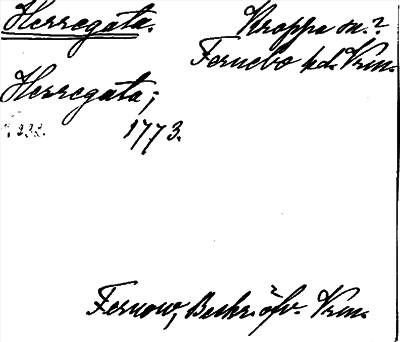 Herregåta. Kroppa sn.?
Fernebo hd. Vrm.
Herregåta;
1773.
Fernow, Beskr. öfv. Vrm.